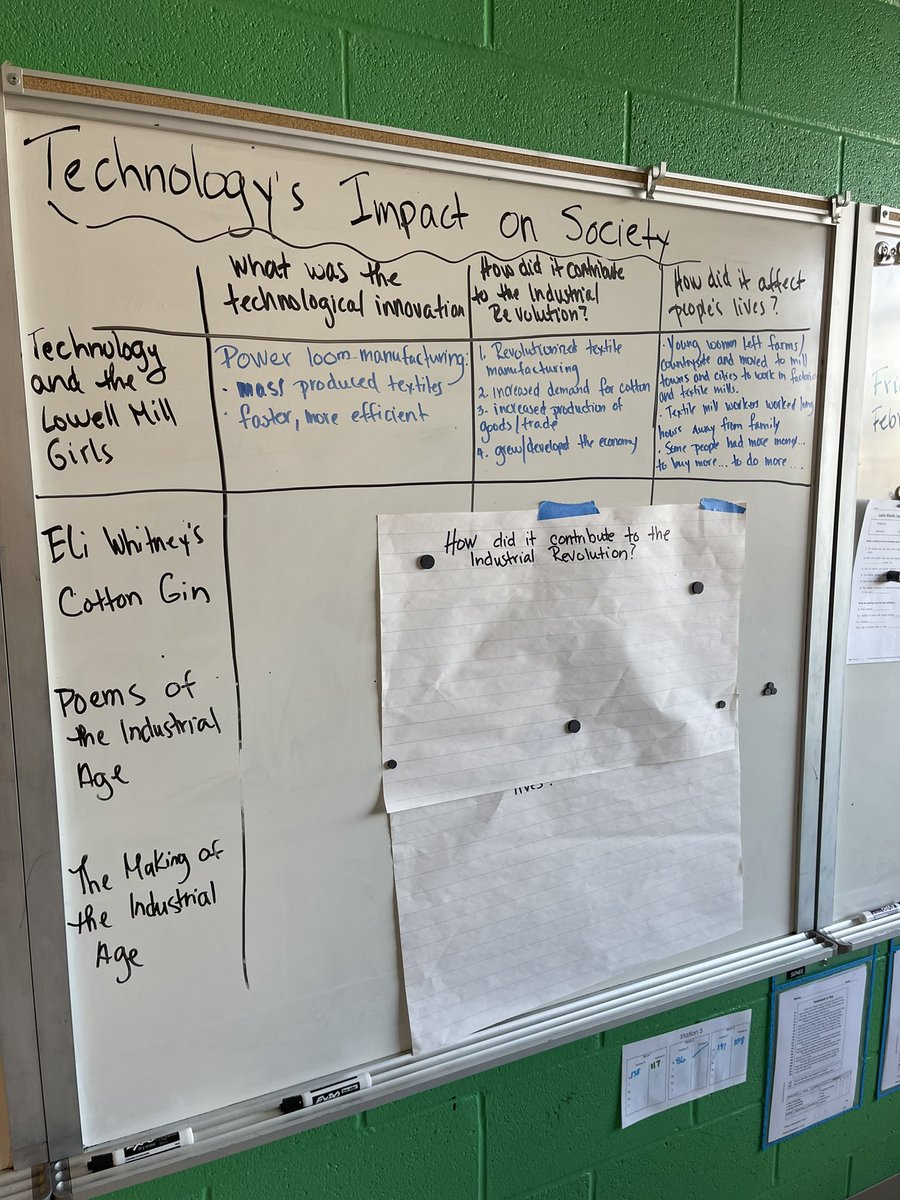 Technology's Impact on Society
What was the
technological innovation
How did it contribute
to the Industrial
Revolution?
How did it affect
people's lives?
Technology
and the
Lowell Mill
Girls
Power loom manufacturing:
• mass produced textiles
• faster, more efficient
1. Revolutionized textile
manufacturing
2. Increased demand for cotton
3. increased production of
goods/trade
4. grew/developed the economy
• Young women left farms/
countryside and moved to mill
towns and cities to work in factories
and textile mills.
• Textile mill workers worked long
hours away from family
• Some people had more money...
to buy more... to do more...
Eli Whitney's
Cotton Gin
Poems of
the Industrial
Age
The Making of
the Industrial
Age
How did it contribute to the
Industrial Revolution?
lives?
Fri
Feb
Station 5
EXPO
EXPO